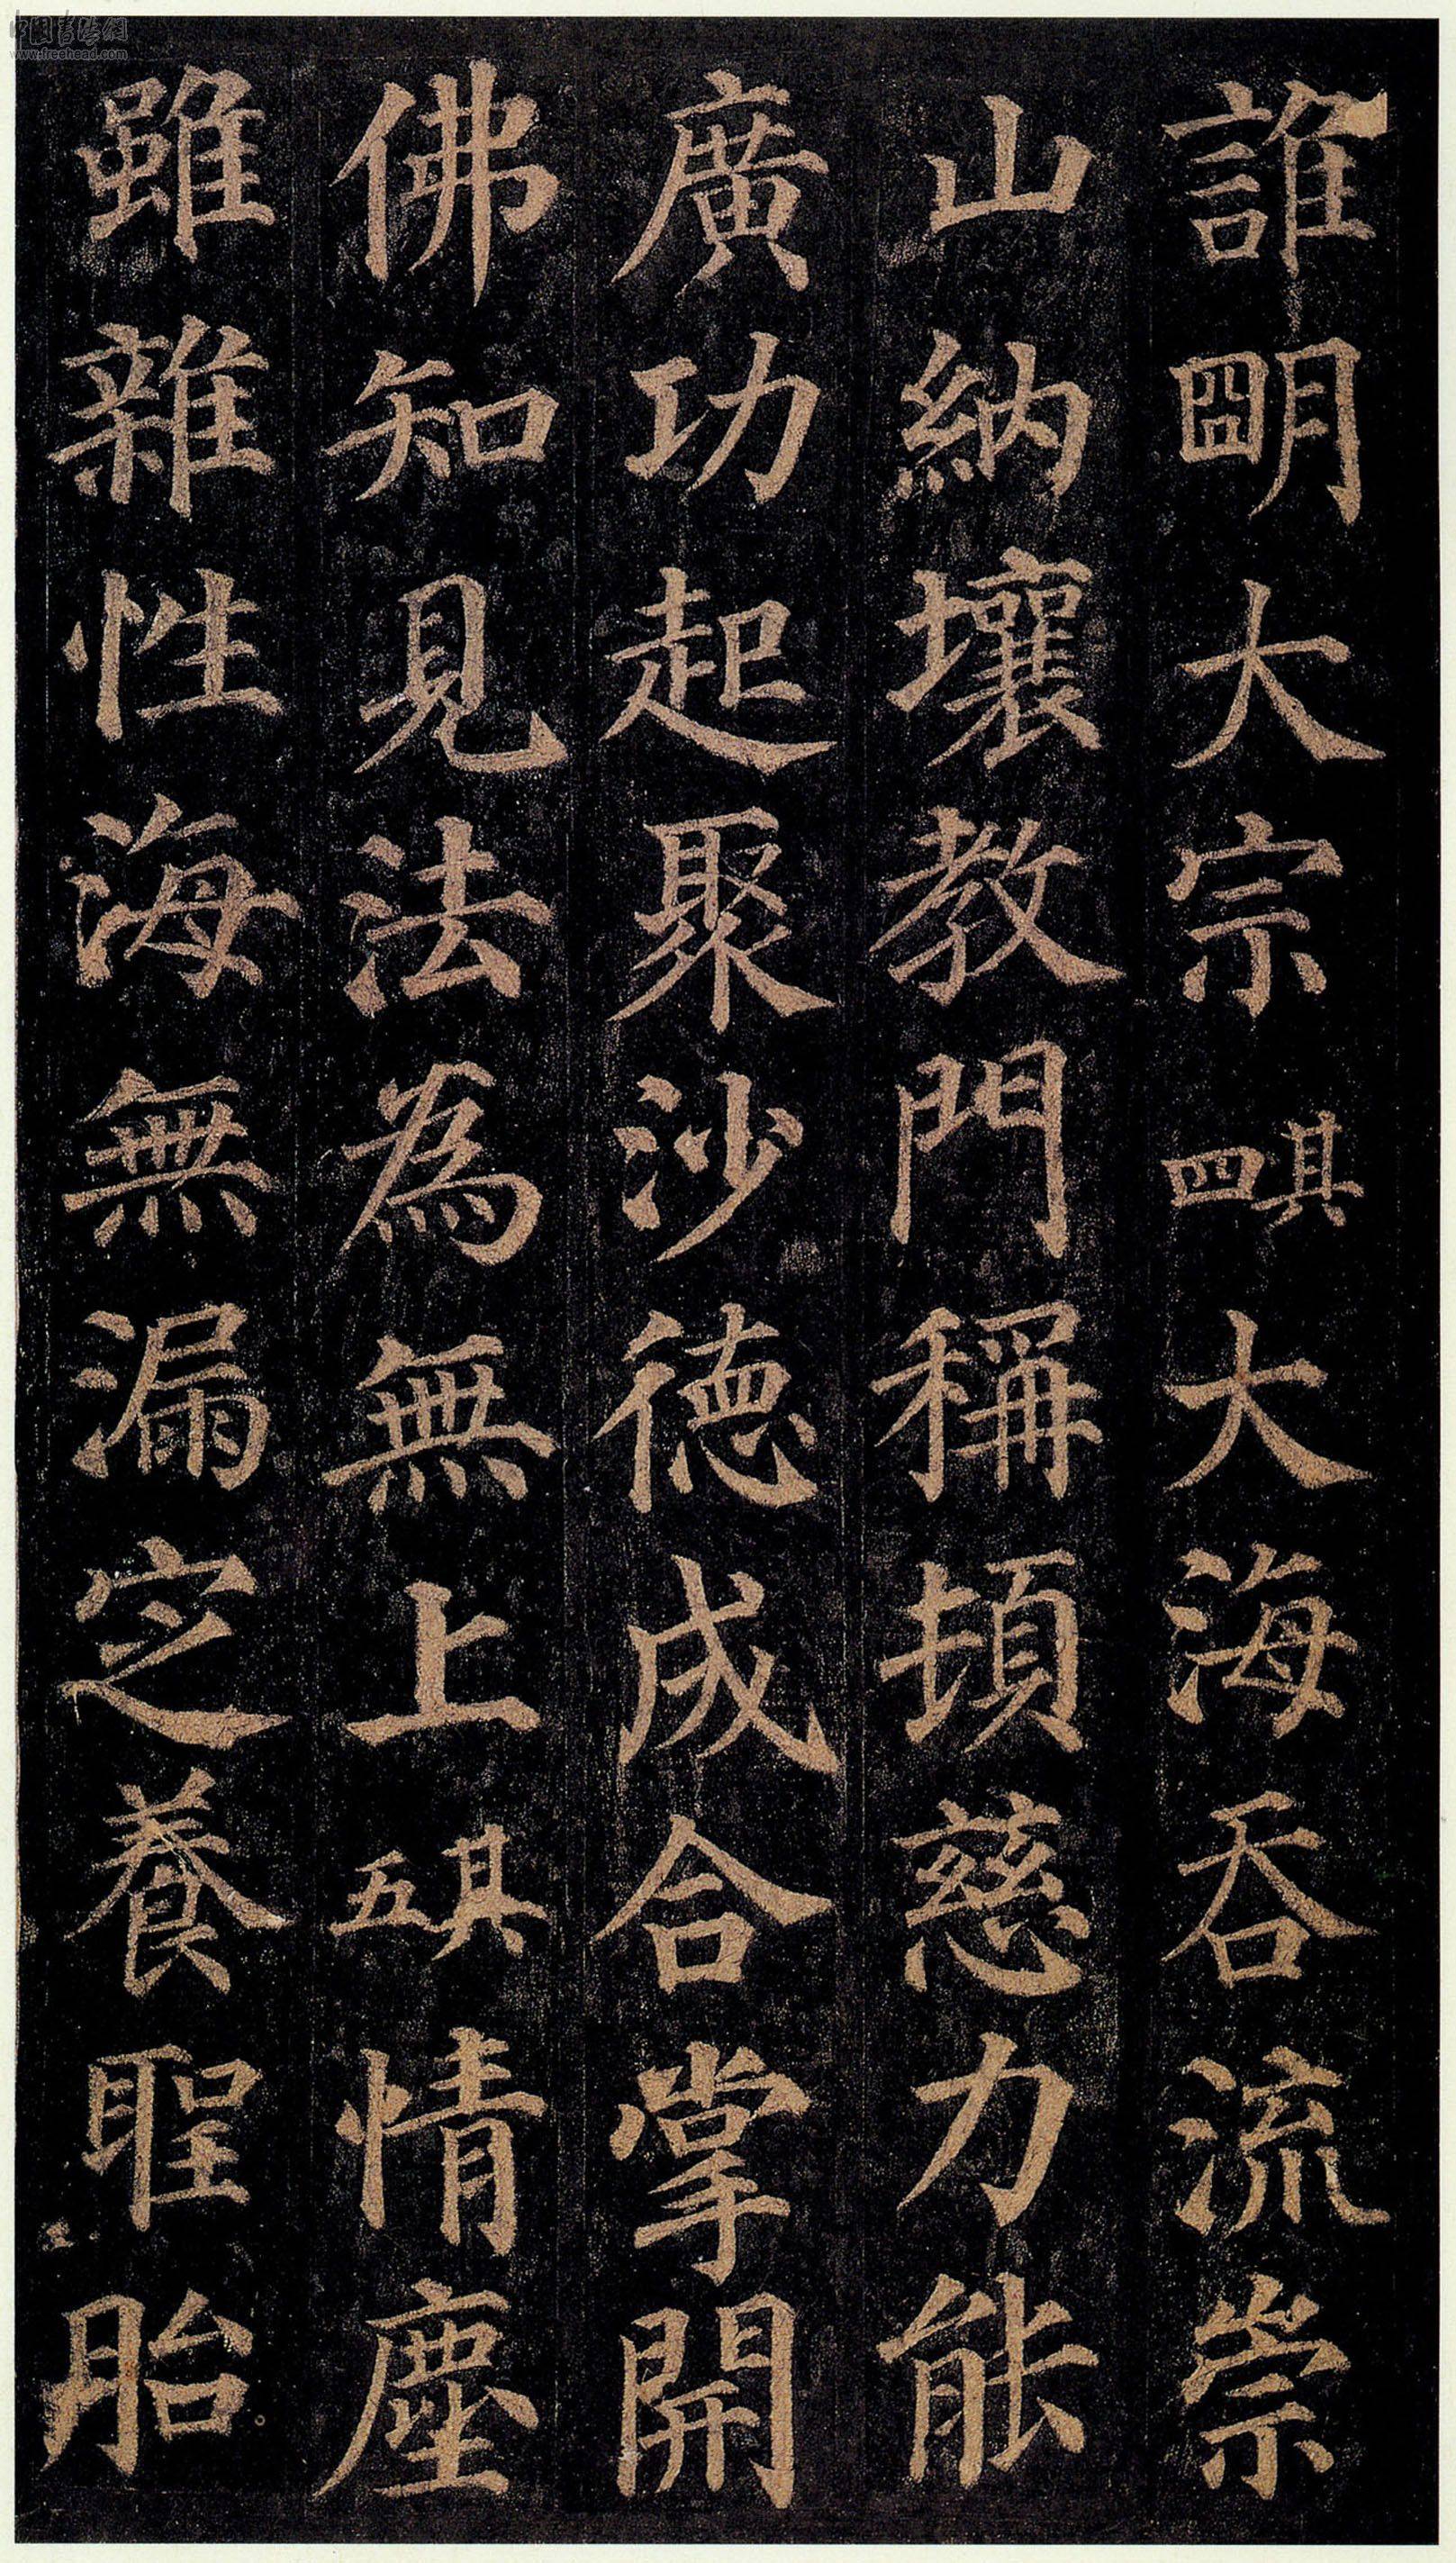 誰明大宗其四大海吞流崇
山納壤教門稱頓慈力能
廣功起聚沙德成合掌開
佛知見法為無上其五情塵
雖雜性海無漏定養聖胎
中国书法网
www.freehead.com